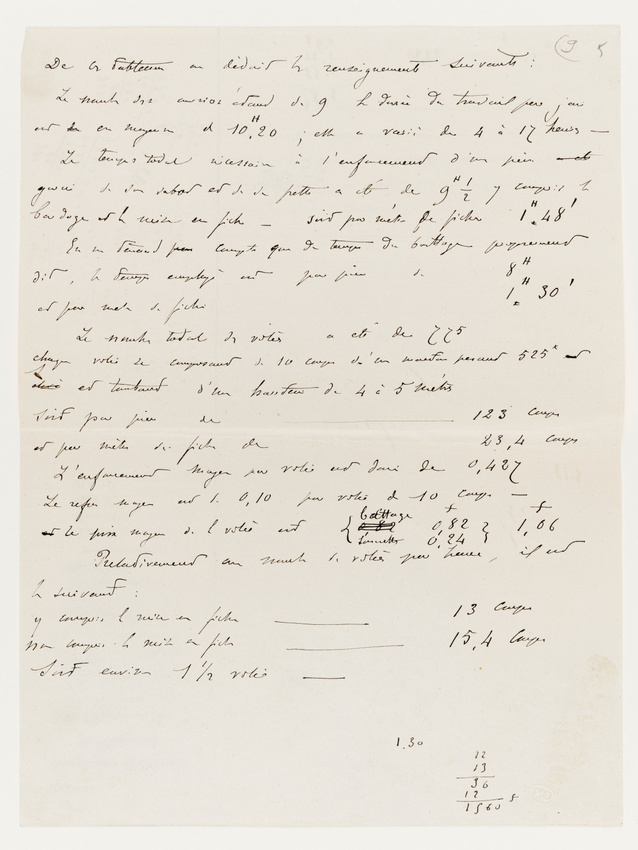 (9 5
De ce Tableau on déduit les renseignements suivants :
Le nombre des ouvriers étant de 9 la durée du travail par jour
est en moyenne de 10ᴴ.20 ; elle a varié de 4 à 17 heures —
Le temps total nécessaire à l'enfoncement d'un pieu
garni de son sabot et de sa frette a été de 9ᴴ ½ y compris le
bardage et la mise en fiche — soit par mètre de fiche 1ᴴ.48'
En ne tenant compte que du temps du battage proprement
dit, le temps employé est par pieu de 8ᴴ
et par mètre de fiche 1ᴴ. 30'
Le nombre total de volées a été de 775
chaque volée se composant de 10 coups d'un mouton pesant 525ᵏ
et tombant d'une hauteur de 4 à 5 mètres
Soit par pieu de 123 coups
et par mètre de fiche de 23,4 coups
L'enfoncement moyen par volée est donc de 0,427
Le refus moyen est de 0,10 par volée de 10 coups —
et le prix moyen de la volée est { battage 0,82 } 1,06
sonnette 0,24
Relativement au nombre de volées par heure, il est
le suivant :
y compris la mise en fiche 13 coups
non compris la mise en fiche 15,4 coups
Soit environ 1 ½ volée —
1.30
12
13
36
12
1560